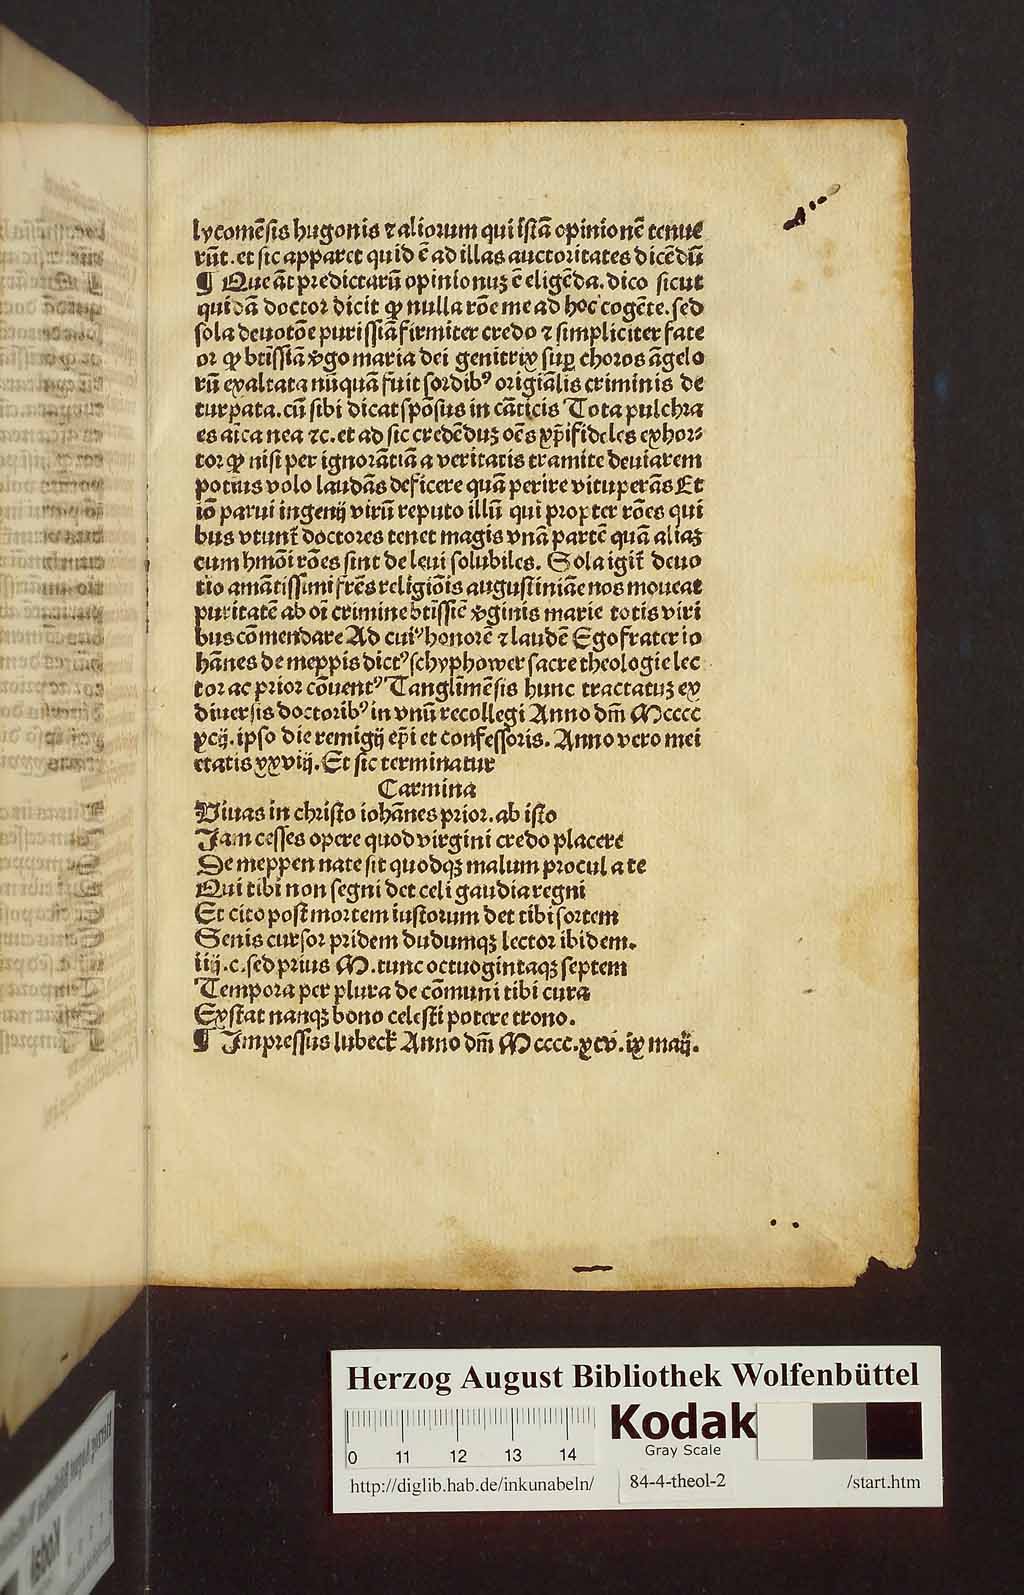 lycomēsis hugonis ⁊ aliorum qui istā opinionē tenue
rūt. et sic apparet quid ē ad illas auctoritates dicēdū
¶ Que āt predictarū opinionuꝫ ē eligēda. dico sicut
quidā doctor dicit ꝙ nulla rōe me ad hoc cogēte. sed
sola deuotōe purissiā firmiter credo ⁊ simpliciter fate
or ꝙ btissiā v̄go maria dei genitrix suꝑ choros āgelo
rū exaltata nūquā fuit sordibꝰ origiālis criminis de
turpata. cū sibi dicat spōsus in cāticis Tota pulchra
es aīca nea ⁊c. et ad sic credēduꝫ oēs xp̄ifideles exhor⸗
tor ꝙ nisi per ignorātiā a veritatis tramite deuiarem
potius volo laudās deficere quā perire vituperās Et
iō parui ingenij virū reputo illū qui propter rōes qui
bus vtunt̄ doctores tenet magis vnā partē quā aliaꝫ
cum hmōi rōes sint de leui solubiles. Sola igit̄ deuo
tio amātissimi frēs religiōis augustiniāe nos moueat
puritatē ab oī crimine btissiē v̄ginis marie totis viri
bus cōmendare Ad cuiꝰ honorē ⁊ laudē Ego frater io
hānes de meppis dictꝰ schyphower sacre theologie lec
tor ac prior cōuentꝰ Tanglimēsis hunc tractatuꝫ ex
diuersis doctoribꝰ in vnū recollegi Anno dm̄ Mcccc
xcij. ipso die remigij ep̄i et confessoris. Anno vero mei
etatis xxviij. Et sic terminatur
Carmina
Viuas in christo iohānes prior. ab isto
Jam cesses opere quod virgini credo placere
De meppen nate sit quodqꝫ malum procul a te
Qui tibi non segni det celi gaudia regni
Et cito post mortem iustorum det tibi sortem
Senis cursor pridem dudumqꝫ lector ibidem.
iiij. c. sed prius M. tunc octuogintaqꝫ septem
Tempora per plura de cōmuni tibi cura
Exstat nanqꝫ bono celesti potere trono.
¶ Impressus lubeck Anno dm̄ Mcccc.xcv. ix maij.
Herzog August Bibliothek Wolfenbüttel
Kodak
Gray Scale
0 11 12 13 14
http://diglib.hab.de/inkunabeln/ 84-4-theol-2 /start.htm